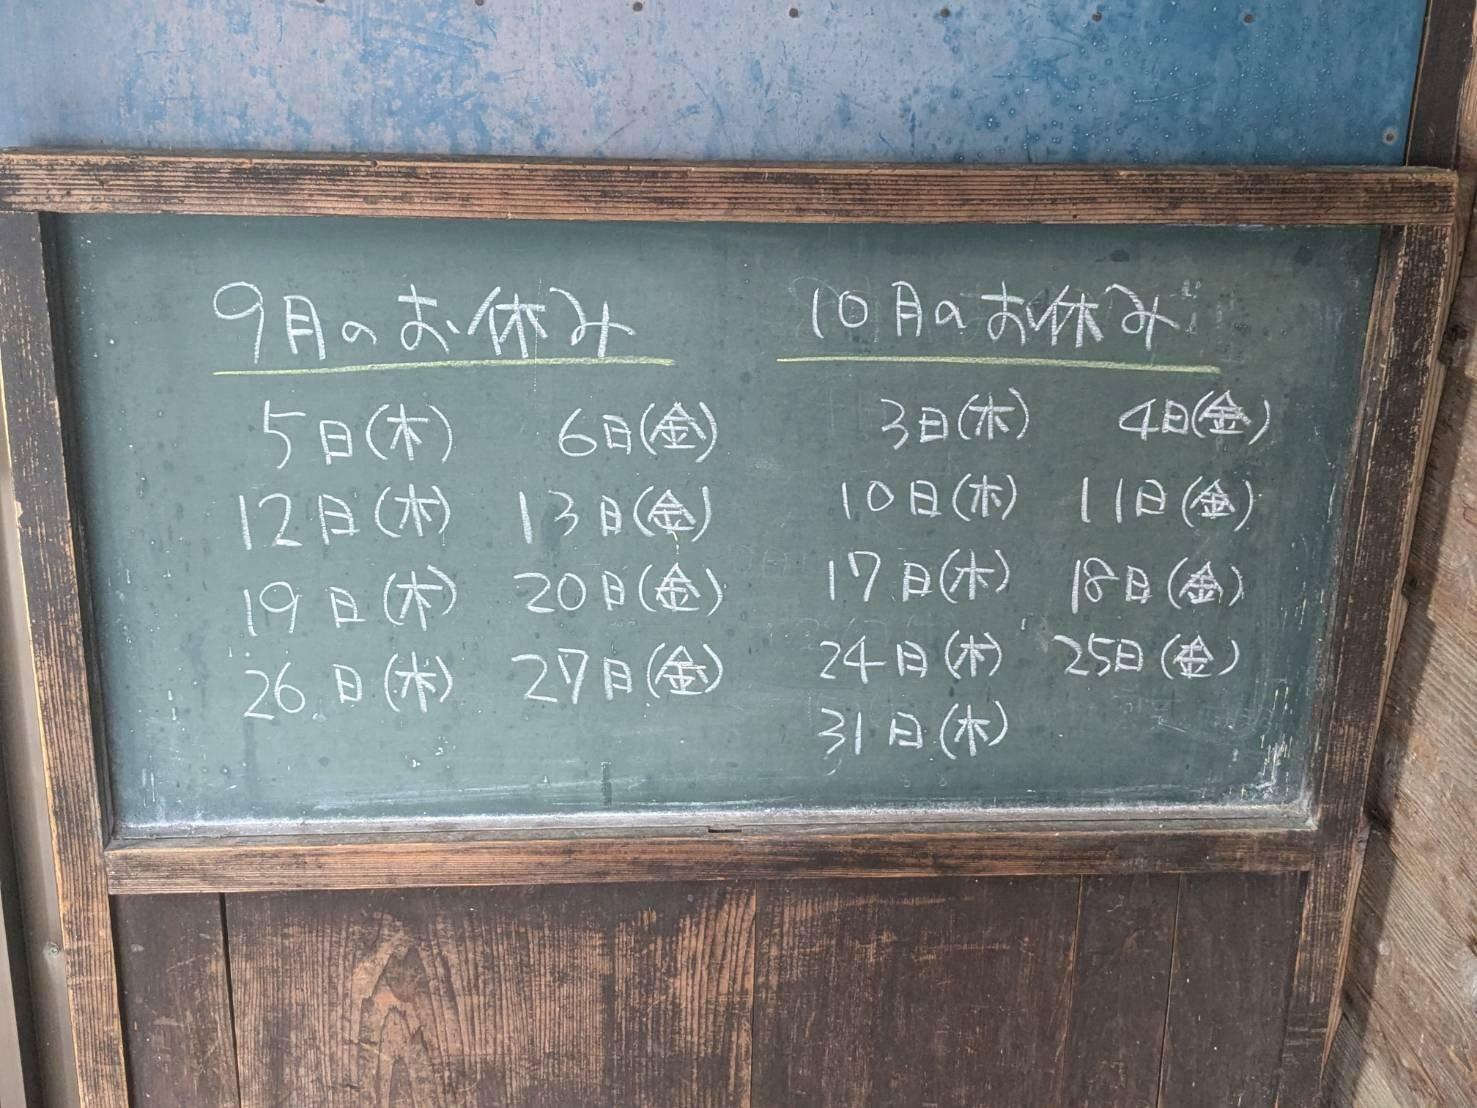 9月のお休み
5日(木) 6日(金)
12日(木) 13日(金)
19日(木) 20日(金)
26日(木) 27日(金)
10月のお休み
3日(木) 4日(金)
10日(木) 11日(金)
17日(木) 18日(金)
24日(木) 25日(金)
31日(木)